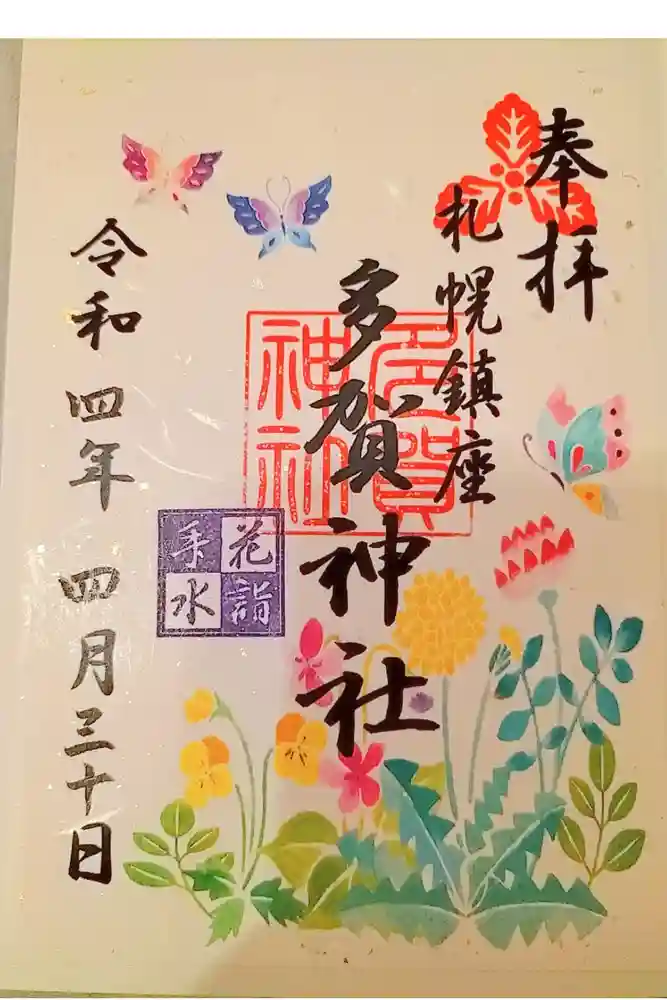 奉拝
札幌鎮座
多賀神社
多賀神社
花詣手水
令和四年四月三十日